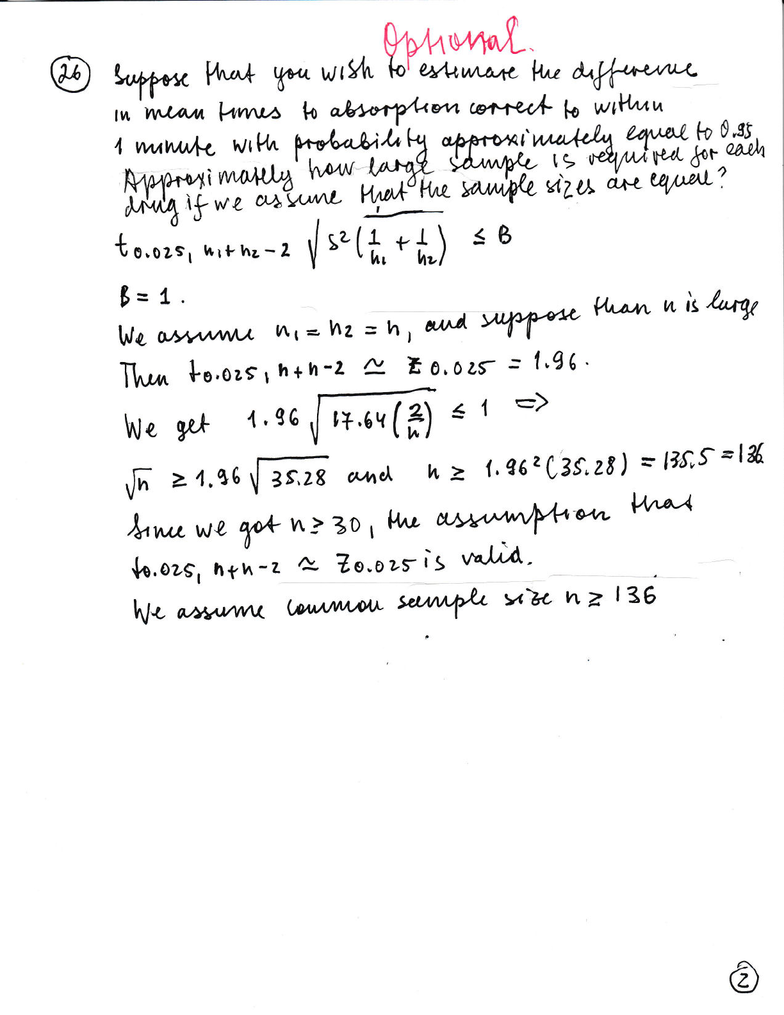 Optional.
(26) Suppose that you wish to estimate the difference
in mean times to absorption correct to within
1 minute with probability approximately equal to 0.95
Approximately how large sample is required for each
drug if we assume that the sample sizes are equal?
t0.025, n1+n2-2 √(S²(1/n1 + 1/n2)) ≤ B
B = 1.
We assume n1 = n2 = n, and suppose than n is large
Then t0.025, n+n-2 ≃ Z0.025 = 1.96.
We get 1.96 √(17.64(2/n)) ≤ 1 =>
√n ≥ 1.96 √35.28 and n ≥ 1.96²(35.28) = 135.5 = 136
Since we got n ≥ 30, the assumption that
t0.025, n+n-2 ≈ Z0.025 is valid.
We assume common sample size n ≥ 136
(2)